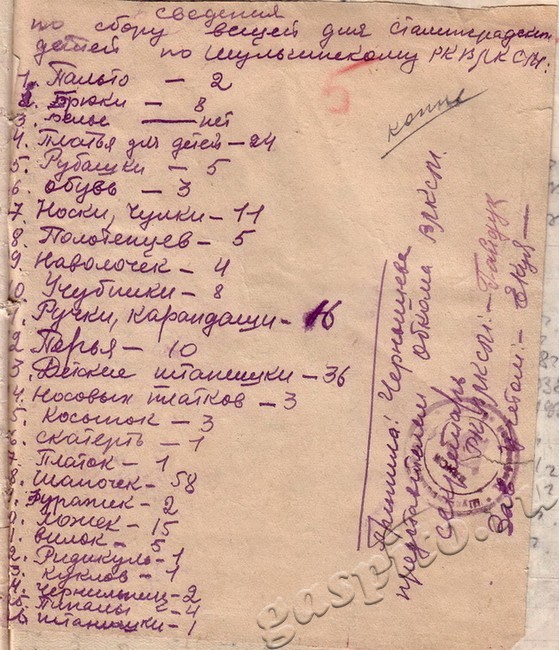 Сведения
по сбору вещей для сталинградских
детей по Шульгинскому РКВЛКСМ.
1. Пальто — 2
2. Брюки — 8
3. Белье — нет
4. Платья для детей — 24
5. Рубашки — 5
6. Обувь — 3
7. Носки, чулки — 11
8. Полотенцев — 5
9. Наволочек — 4
0. Учубники — 8
Ручки, карандаши — 16
2. Перья — 10
3. Детские штанишки — 36
4. Носовых платков — 3
5. Косынок — 3
6. Скатерть — 1
7. Платок — 1
8. Шапочек — 58
Фуражек — 2
Ложек — 15
1. Вилок — 5
2. Ридикуль — 1
3. Куклов — 1
Чернильниц — 2
Пиналы — 4
штанишки — 1
5
копие
Приняла: Чернышева
представител обкома ВЛКСМ.
Секретарь
РКВЛКСМ: —
Зав. учетом: —
gaspito.ru